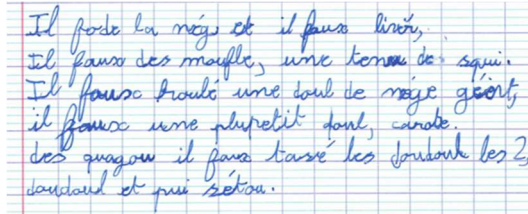 Il fode la nég et il faux livèr,
Il faux des moufle, une tenu de squi.
Il faux roulé une boul de nége géent,
il faux une plupetit boul, carote.
des quagou il faux tassé les boudoul les 2,
boudoul et pui sétou.